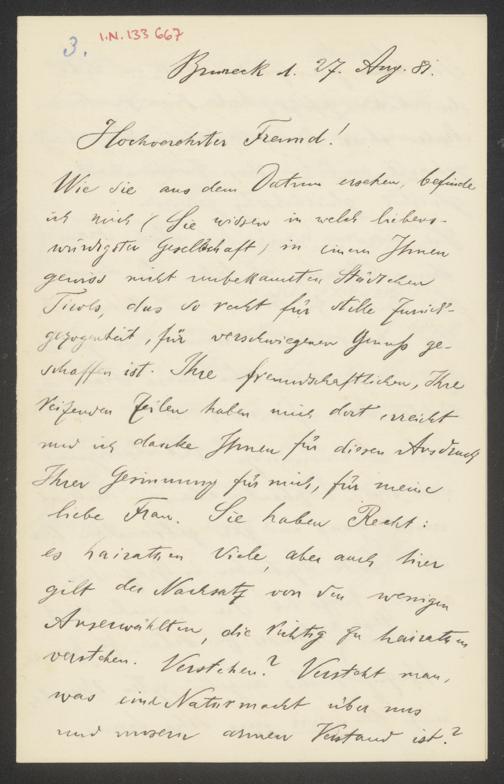 3. I.N. 133 667
Bruneck d. 27. Aug. 81.
Hochverehrter Freund!
Wie Sie aus dem Datum ersehen, befinde
ich mich (Sie wissen in welch liebens-
würdigster Gesellschaft) in einem Ihnen
gewiss nicht unbekannten Städtchen
Tirols, das so recht für stille Zurück-
gezogenheit, für verschwiegenen Genuss ge-
schaffen ist. Ihre freundschaftlichen, Ihre
Zeilen haben mich dort erreicht
und ich danke Ihnen für diesen Ausdruck
Ihrer Gesinnung für mich, für meine
liebe Frau. Sie haben Recht:
es hairathen Viele, aber auch hier
gilt der Nachsatz von den wenigen
Auserwählten, die richtig zu hairathen
verstehen. Verstehen? Versteht man,
was eine Naturmacht über uns
und unsern armen Verstand ist?